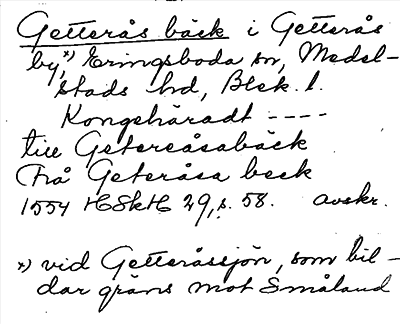 Getterås bäck i Getterås
by,*) Eringsboda sn, Medel-
stads hd, Blek. l.
Kongshäradt ----
till Getereåsabäck
(från Geteråsa beck
1554 HSkH 29, s. 58. avskr.
*) vid Getteråssjön, som bil-
dar gräns mot Småland